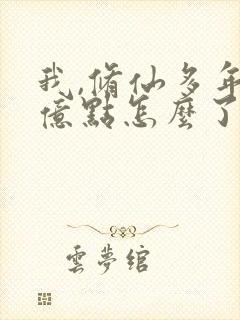 我,脩仙多年
億點怎麼了
雲夢綰